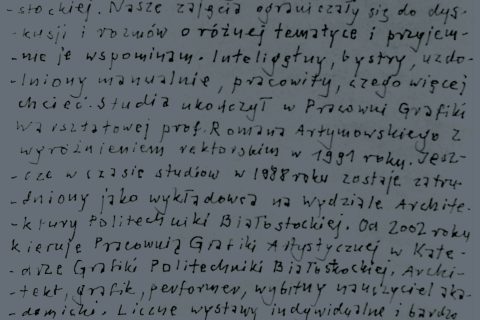 -stockiej. Nasze zajęcia ograniczały się do dys-
-kusji i rozmów o różnej tematyce i przyjem-
-nie je wspominam. Inteligętny, bystry, uzdo-
-lniony manualnie, pracowity, czego więcej
chcieć. Studia ukończył w Pracowni Grafiki
Warsztatowej prof. Romana Artymowskiego z
wyróżnieniem rektorskim w 1991 roku. Jesz-
-cze w czasie studiów w 1988 roku zostaje zatru-
-dniony jako wykładowca na Wydziale Archite-
-ktury Politechniki Białostockiej. Od 2002 roku
kieruje Pracownią Grafiki Artystycznej w Kate-
-drze Grafiki Politechniki Białostockiej. Archi-
-tekt, grafik, performer, wybitny nauczyciel aka-
-demicki. Liczne wystawy indywidualne i bardzo